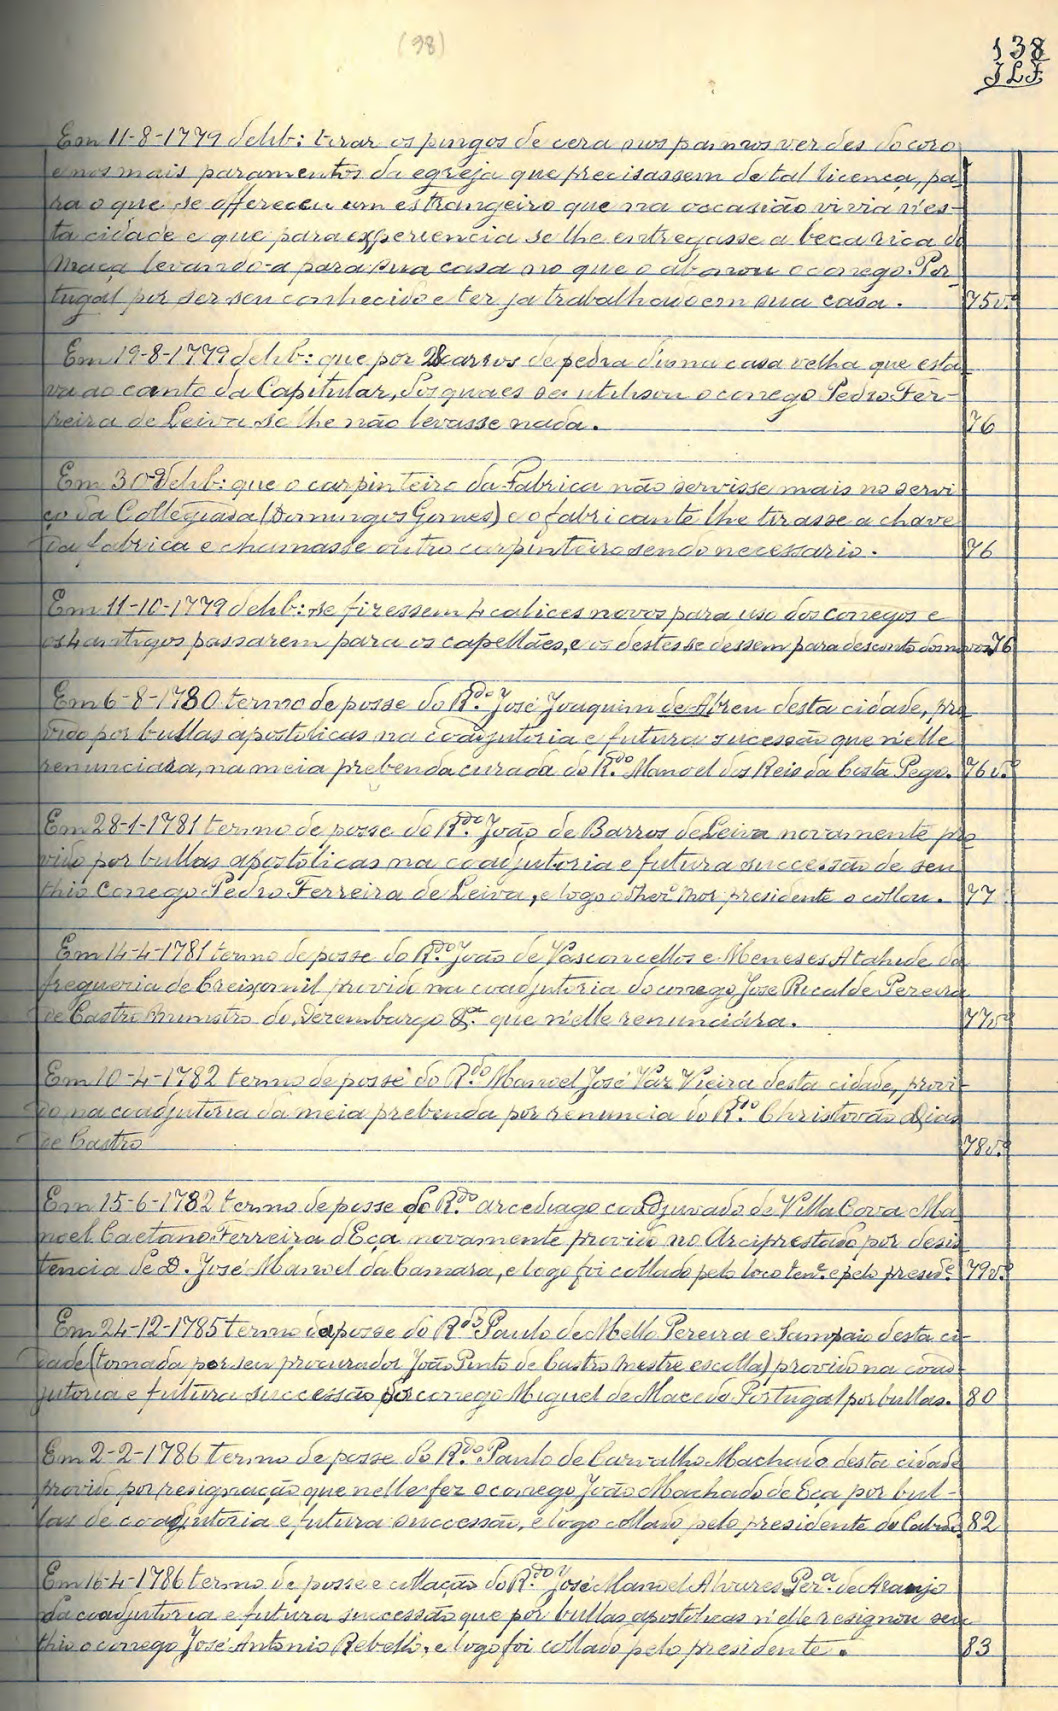 (98)
138
JLF
Em 11-8-1779 delib: tirar os pingos de cera nos pannos verdes do coro
e nos mais paramentos da egreja que precisassem de tal licença, pa-
ra o que se offereceu um estrangeiro que na occasião vivia n'es-
ta cidade e que para experiencia se lhe entregasse a beca rica da
Maça levando-a para sua casa no que o abonou o conego Por-
tugal por ser seu conhecido e ter ja trabalhado em sua casa. 75v.º
Em 19-8-1779 delib: que por 28 carros de pedra d'uma casa velha que esta-
va ao canto da Capitular, dos quaes se utilisou o conego Pedro Fer-
reira de Leiva se lhe não levasse nada. 76
Em 30 delib: que o carpinteiro da Fabrica não servisse mais no servi-
ço da Collegiada (Domingos Gomes) e o fabricante lhe tirasse a chave
da fabrica e chamasse outro carpinteiro sendo necessario. 76
Em 11-10-1779 delib: se fizessem 4 calices novos para uso dos conegos e
os 4 antigos passarem para os capellães, e os destes se dessem para desconto dos novos 76
Em 6-8-1780 termo de posse do R.do José Joaquim de Abreu desta cidade, pro-
vido por bullas apostolicas na coadjutoria e futura sucessão que n'elle
renunciara, na meia prebenda curada do R.do Manoel dos Reis da Costa Pego. 76v.º
Em 28-1-1781 termo de posse do R.do João de Barros de Leiva novamente pro-
vido por bullas apostolicas na coadjutoria e futura successão de seu
thio Conego Pedro Ferreira de Leiva, e logo o presidente o collou. 77
Em 14-4-1781 termo de posse do R.do João de Vasconcellos e Meneses Atahide da
freguesia de Creixomil provido na coadjutoria do conego José Ricalde Pereira
de Castro ministro do Desembargo &.ª que n'elle renunciára. 77v.º
Em 10-4-1782 termo de posse do R.do Manoel José Vaz Vieira desta cidade, provi-
do na coadjutoria da meia prebenda por renuncia do R.do Christovão Dias
de Castro 78v.º
Em 15-6-1782 termo de posse do R.do arcediago coadjuvado de Villa Cova Ma-
noel Caetano Ferreira d'Eça novamente provido no Arciprestado por desis-
tencia de D. José Manoel da Camara, e logo foi collado pelo loco ten.e e pelo presid.e 79v.º
Em 24-12-1785 termo de posse do R.do Paulo de Mello Pereira e Sampaio desta ci-
dade (tomada por seu procurador João Pinto de Castro mestre escolla) provido na coad-
jutoria e futura successão do conego Miguel de Macedo Portugal por bullas. 80
Em 2-2-1786 termo de posse do R.do Paulo de Carvalho Machado desta cidade
provido por resignação que nelle fez o conego João Machado de Eça por bul-
las de coadjutoria e futura successão, e logo collado pelo presidente do Cabido 82
Em 16-4-1786 termo de posse e collação do R.do José Manoel Alvares Per.ª de Araujo
da coadjutoria e futura successão que por bullas apostolicas n'elle resignou seu
thio o conego José Antonio Rebello, e logo foi collado pelo presidente. 83